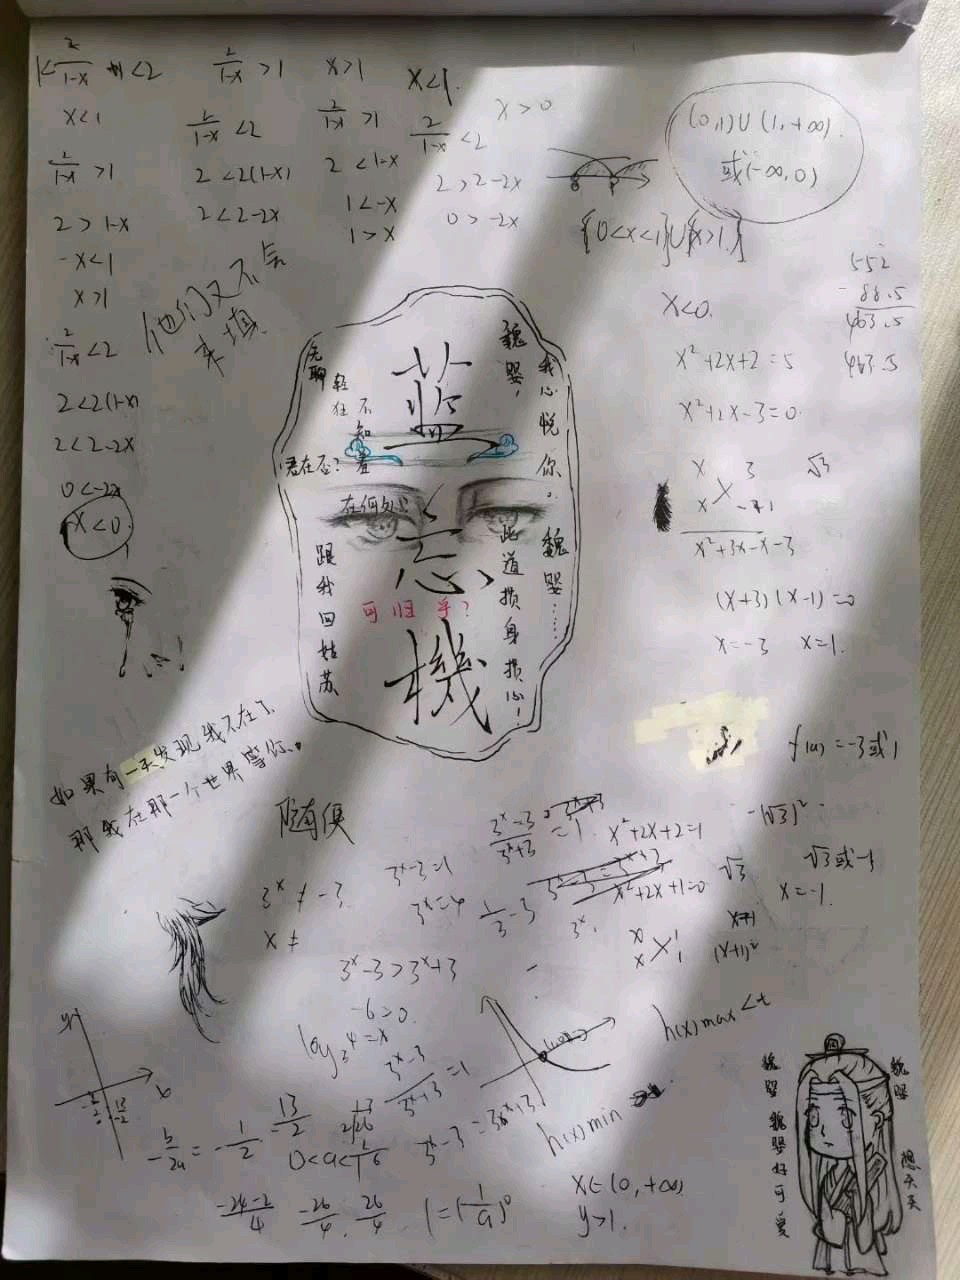 1<2/(1-x) <2
x<1
2/(1-x) >1
2>1-x
-x<1
x>1
2/(1-x) <2
2<2(1-x)
2<2-2x
0<-2x
x<0
2/(1-x) >1
2/(1-x) <2
2<2(1-x)
2<2-2x
x>1
2/(1-x) >1
2<1-x
1<-x
1>x
x<1
2/(1-x) <2
2>2-2x
0>-2x
x>0
(0,1)∪(1,+∞)
或(-∞,0)
{0<x<1}∪{x>1}
x<0
552
-88.5
463.5
463.5
x²+2x+2=5
x²+2x-3=0
x 3
x -1
√3
x²+3x-x-3
(x+3)(x-1)=0
x=-3 x=1
他们又不会
来填
无聊
轻狂不知羞
君在否?
在何处?
可归乎?
跟我回姑苏
蓝忘機
魏婴,
我心悦你。
魏婴……
此道损身损心!
如果有一天发现我不在了
那我在那一个世界等你。
随便
f(a)=-3或1
3ˣ≠-3
x≠
3ˣ-3=1
3ˣ=4
(3ˣ-3)/(3ˣ+3) =1
1/3-3
x²+2x+2=1
x²+2x+1=0
x 1
x 1
(x+1)²
-(√3)²
√3
√3或-1
x=-1
3ˣ-3>3ˣ+3
-6>0
log₃4=x
(3ˣ-3)/(3ˣ+3) =1
3ˣ-3=3ˣ+3
h(x)max<t
h(x)min
y
x
-b/2a = -1/2
13/2
13
2/26
-24-2/4
-26/4
26/4
1=(1/a)⁰
x∈(0,+∞)
y>1
魏婴 魏婴好可爱
魏婴
想天天